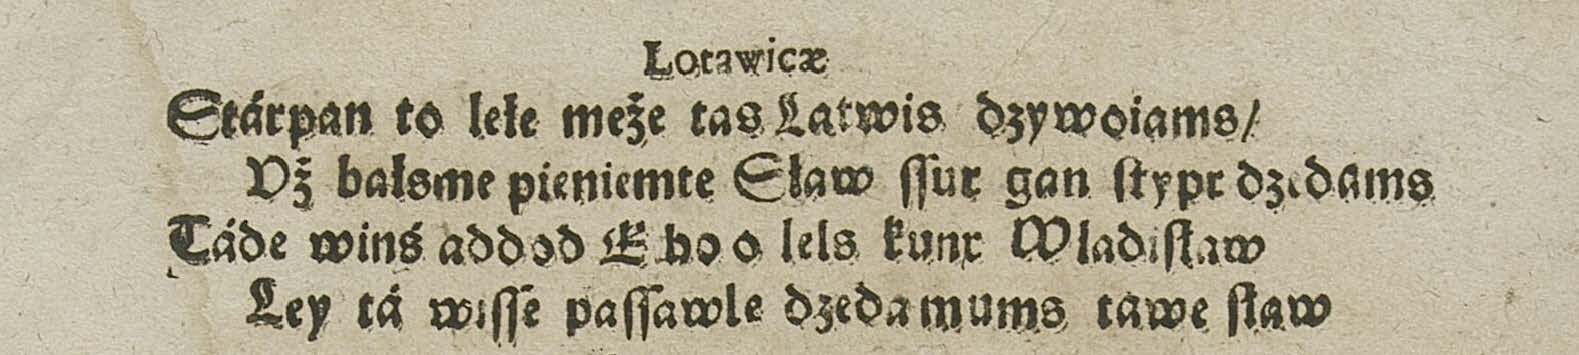 Lotawicæ
Stárpan to lełe meże tas Latwis dzywoiams/
Vż bałsme pieniemte Sław ſſur gan ſtypr dzedams
Táde winś addod Eho o lels kunx Wladiſław
Ley tá wiſſe paſſawle dzedamums tawe ſław